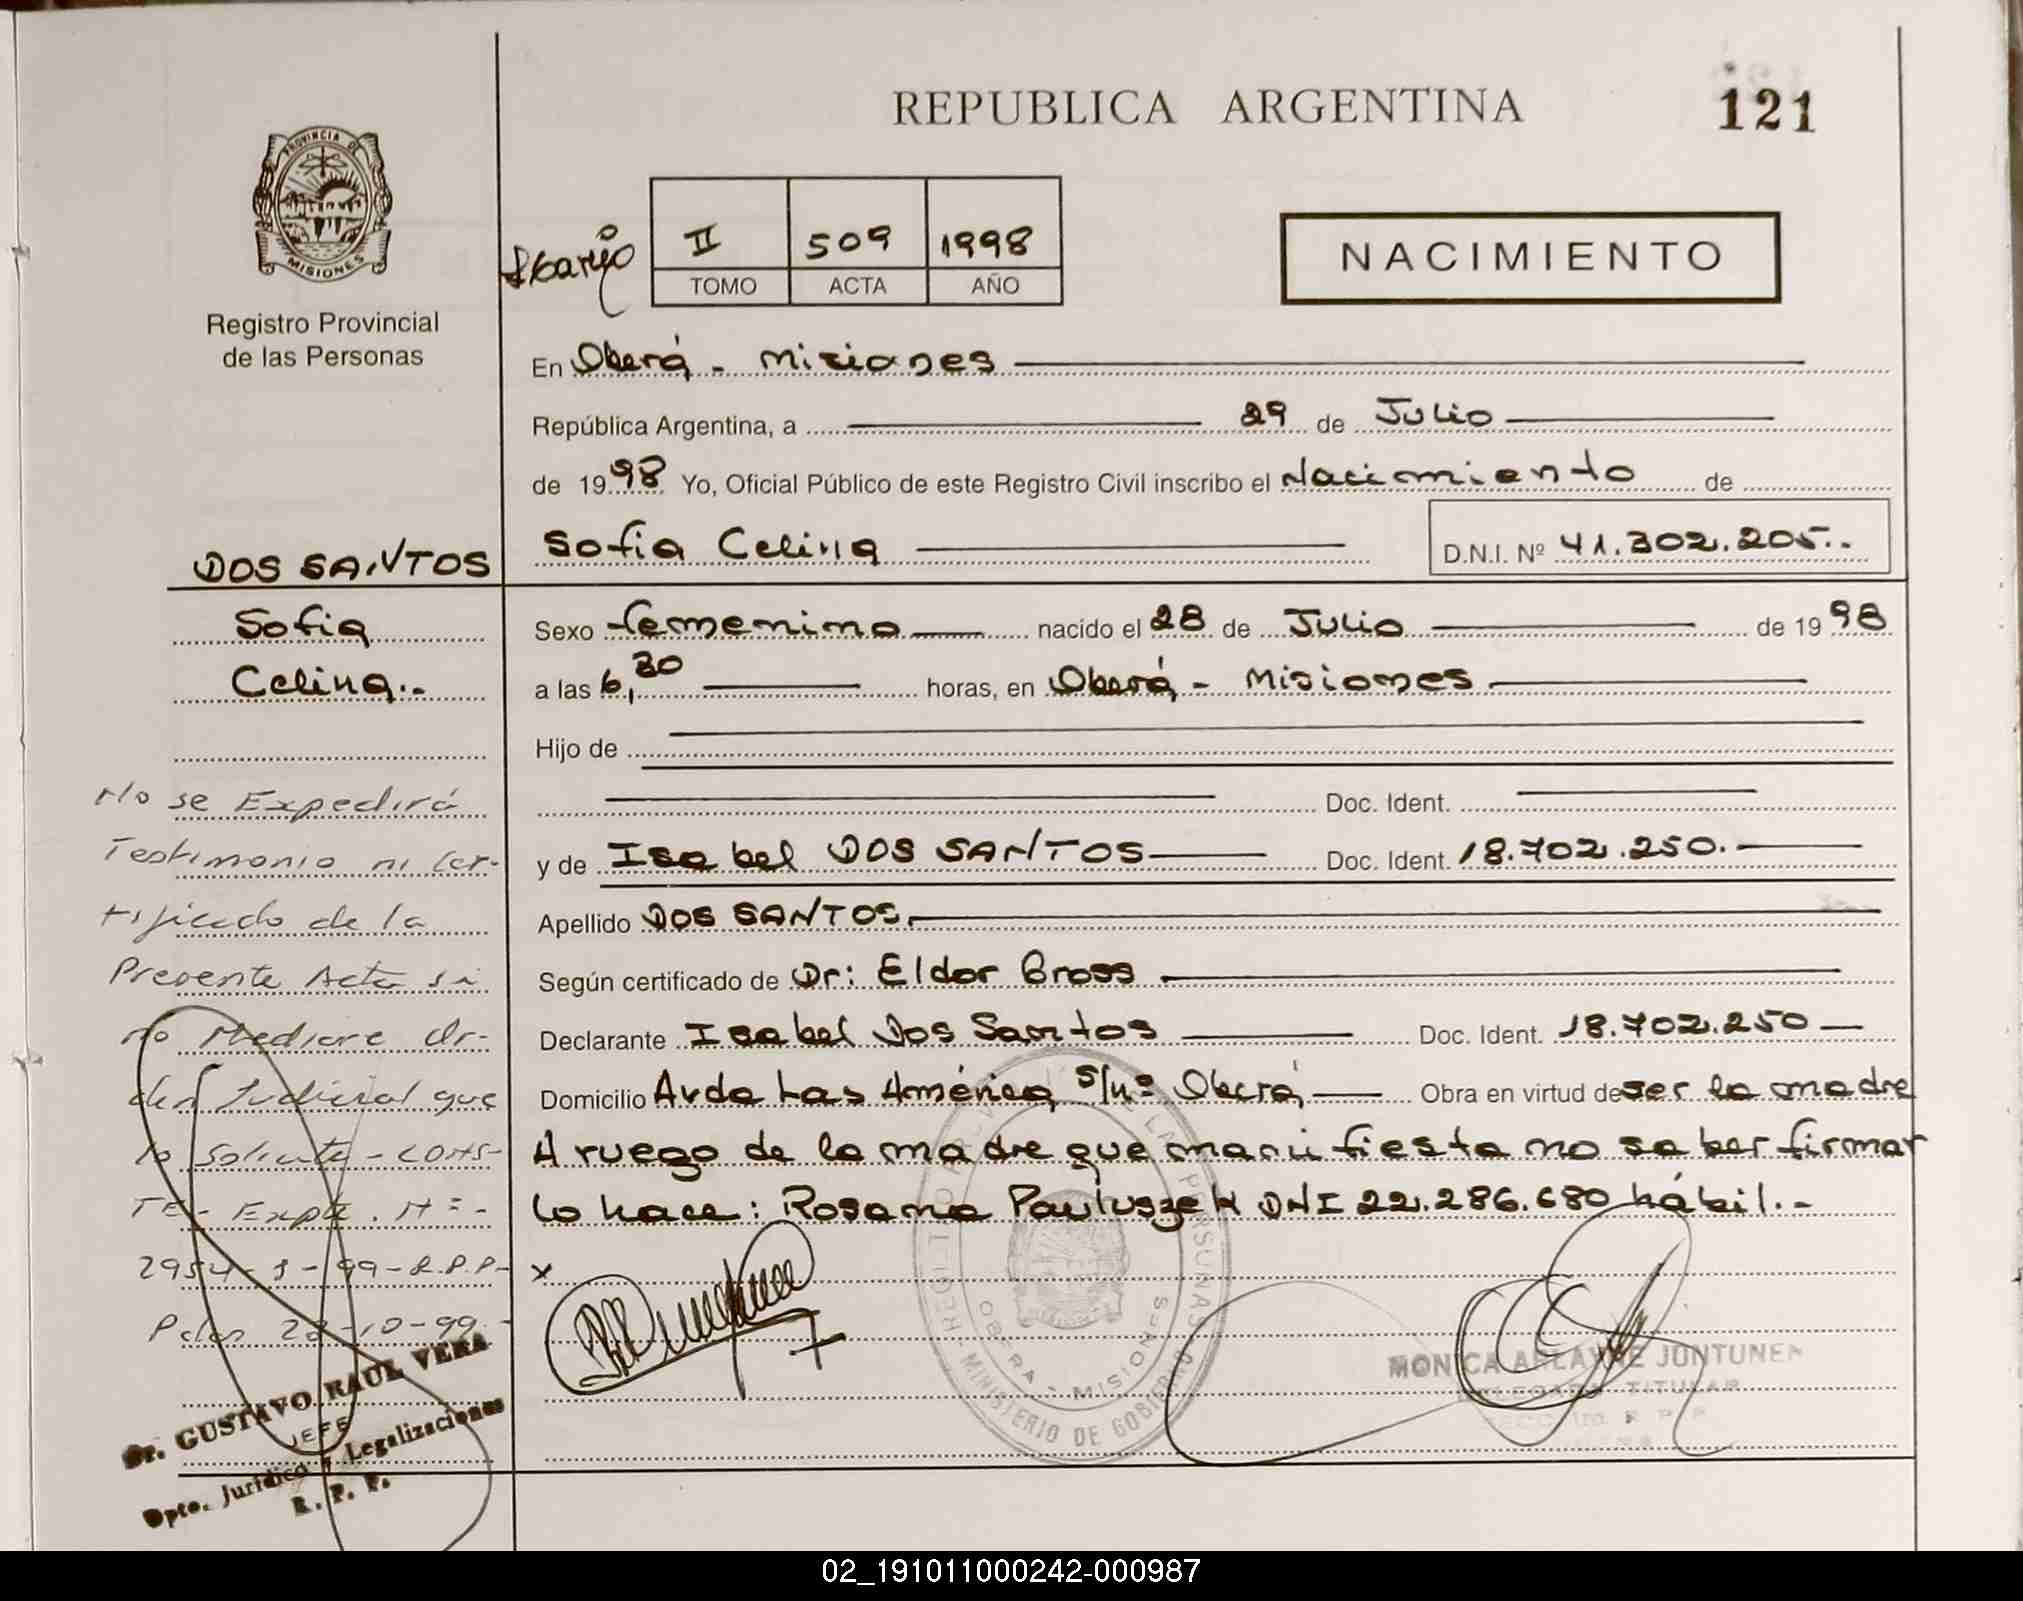 REPUBLICA ARGENTINA
121
PROVINCIA DE MISIONES
Registro Provincial
de las Personas
II 509 1998
TOMO ACTA AÑO
NACIMIENTO
En Oberá - Misiones
República Argentina, a 29 de Julio
de 1998 Yo, Oficial Público de este Registro Civil inscribo el Nacimiento de
Sofia Celina D.N.I. Nº 41.302.205.-
DOS SANTOS
Sofia
Celina.-
Sexo femenino nacido el 28 de Julio de 1998
a las 6,30 horas, en Oberá - Misiones
Hijo de
Doc. Ident.
y de Isabel DOS SANTOS Doc. Ident. 18.702.250.
Apellido DOS SANTOS.
Según certificado de Dr: Eldor Bross
Declarante Isabel Dos Santos Doc. Ident. 18.702.250
Domicilio Avda Las América s/nº Oberá Obra en virtud de ser la madre
A ruego de la madre que manifiesta no saber firmar
lo hace: Rosana Pawluszek DNI 22.286.680 hábil.-
x
No se Expedirá
Testimonio ni Cer-
tificado de la
Presente Acta si
no Mediare Or-
den Judicial que
lo Solicite - CONS-
TE - Expte. Nº -
2954-S-99-R.P.P-
Pdas 28-10-99.-
Dr. GUSTAVO RAUL VERA
JEFE
Dpto. Jurídico y Legalizaciones
R. P. P.
MINISTERIO DE GOBIERNO
OBERA - MISIONES
MONICA ARLAYNE JUNTUNEN
DELEGADA TITULAR
02_191011000242-000987